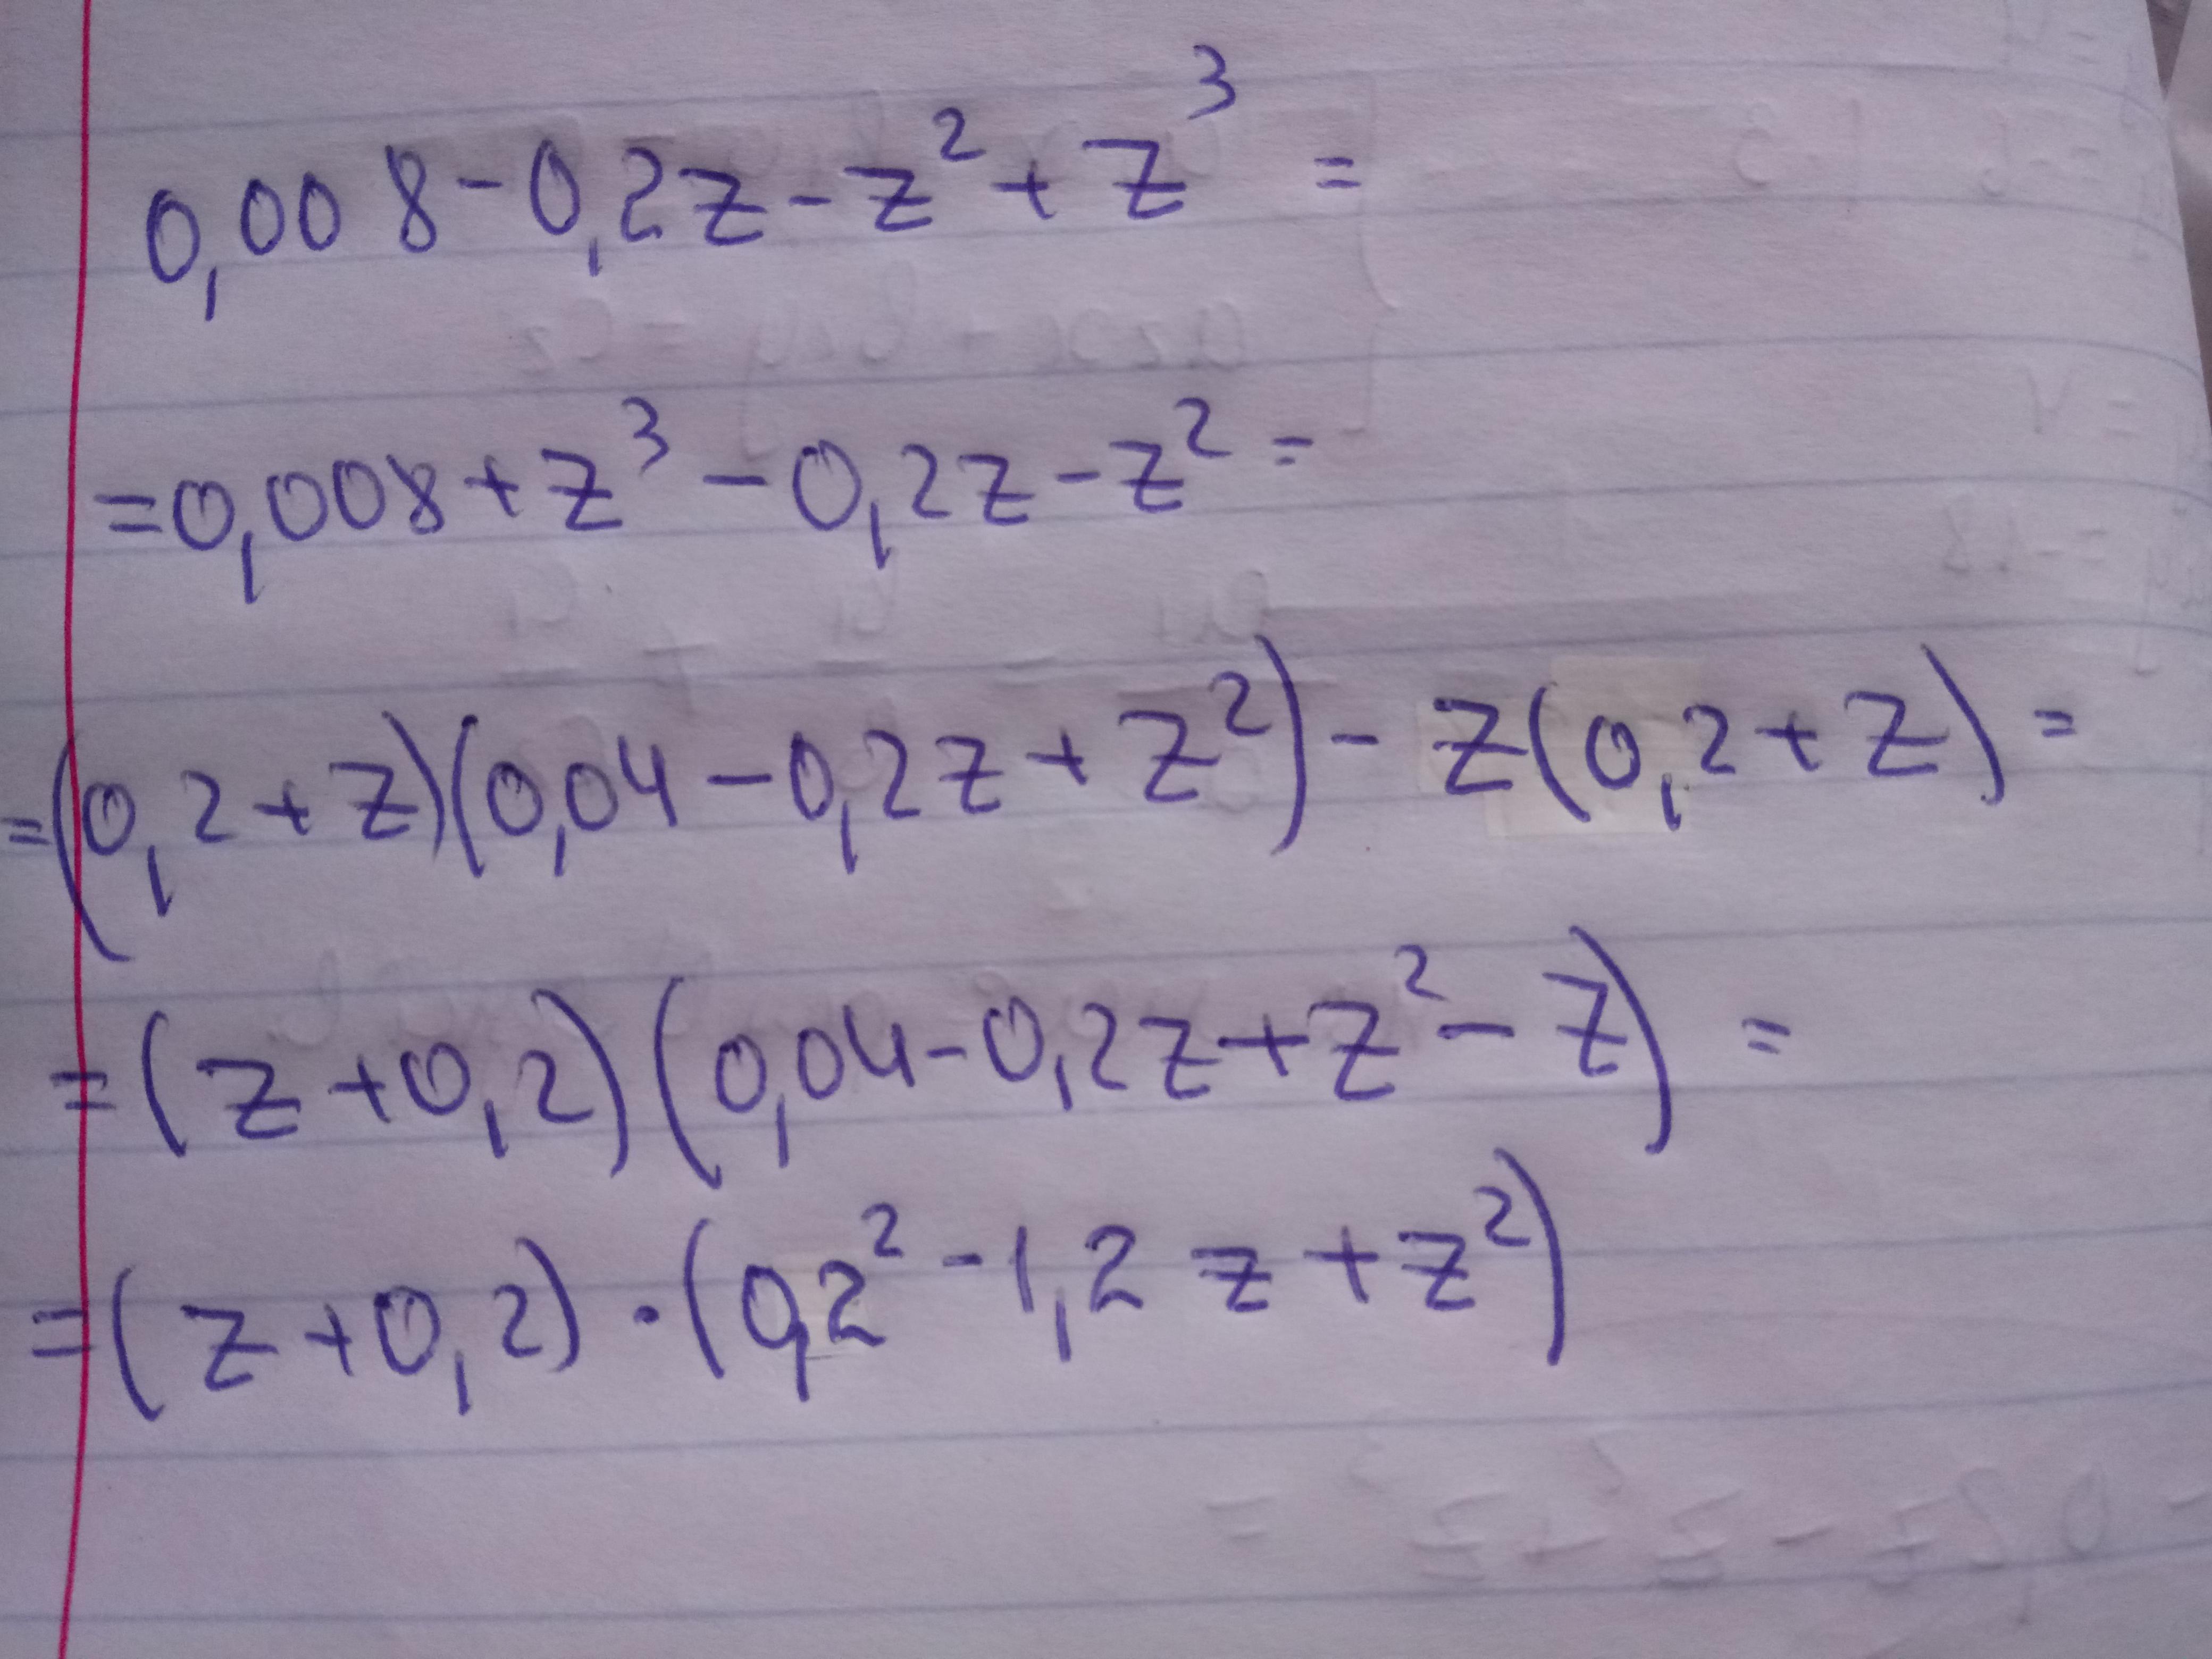 0,008-0,2z-z²+z³ =
=0,008+z³-0,2z-z²=
=(0,2+z)(0,04-0,2z+z²)-z(0,2+z)=
=(z+0,2)(0,04-0,2z+z²-z) =
=(z+0,2)·(0,2²-1,2z+z²)